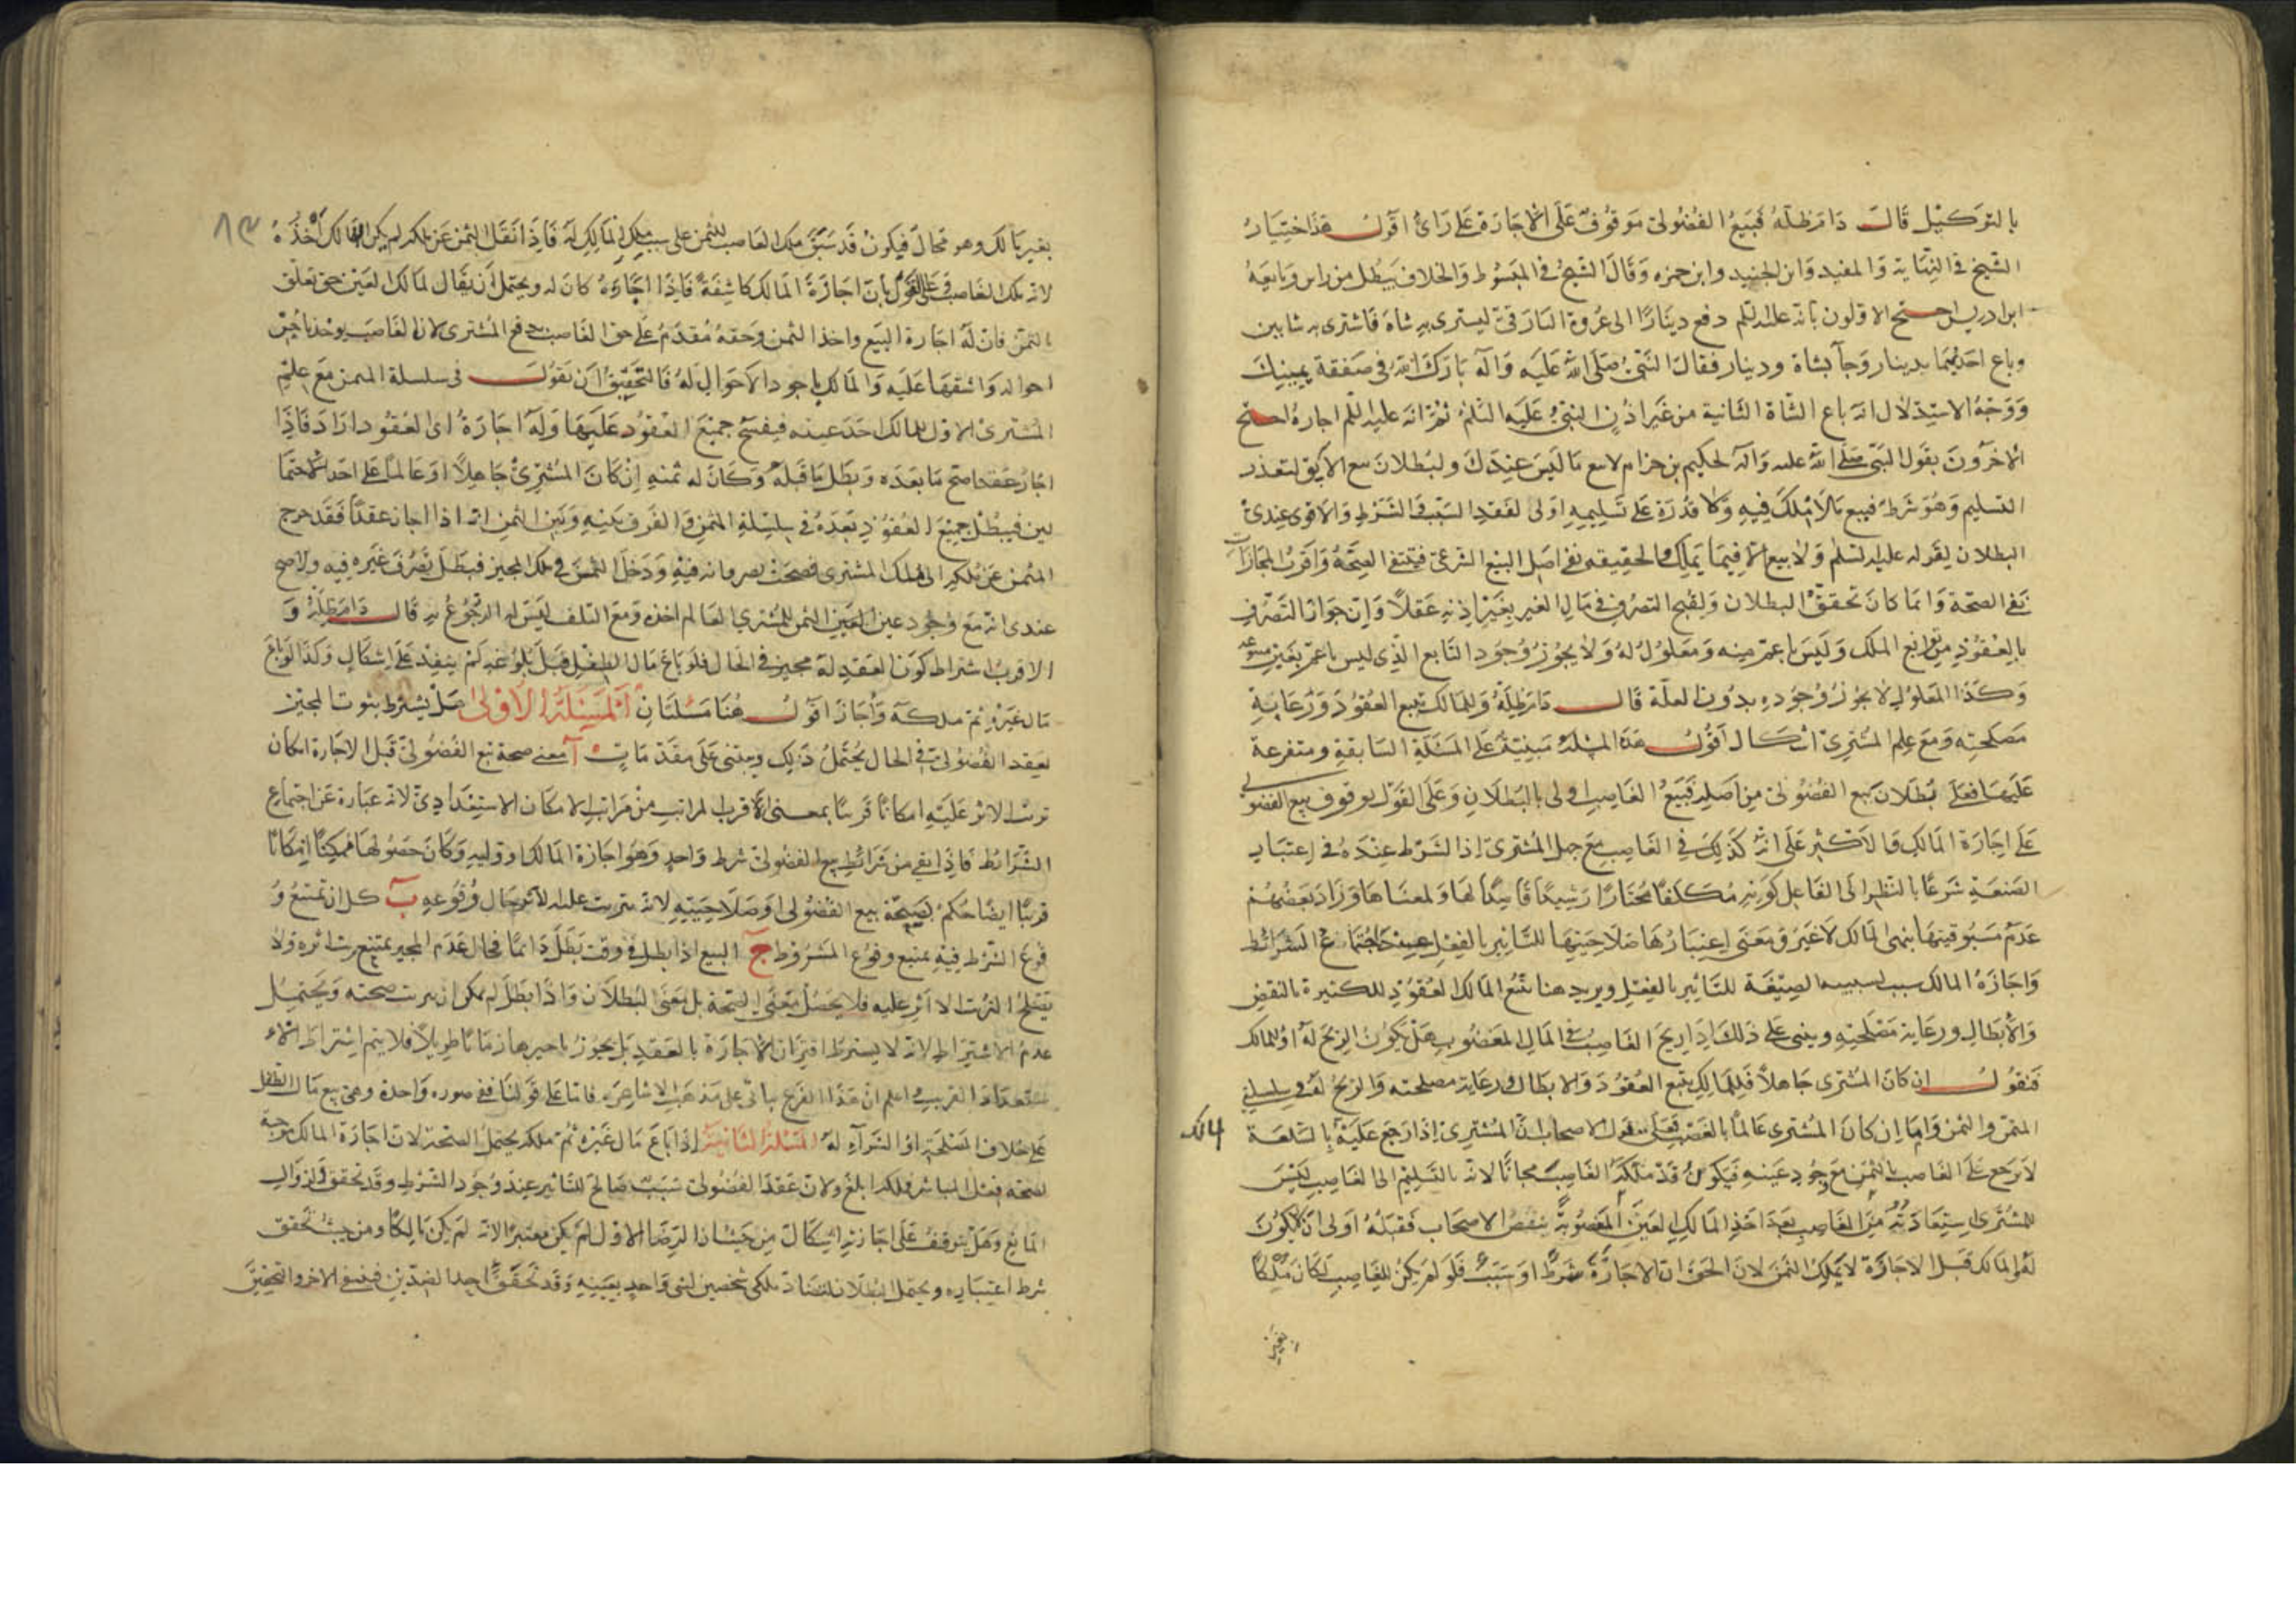 بالتوكيل قال دام ظله فبيع الفضولي موقوف على الاجازة على رأي اقول هذا اختيار
الشيخ في النهاية والمفيد وابن الجنيد وابن حمزه وقال الشيخ في المبسوط والخلاف يبطل من راس وتابعه
ابن ادريس احتج الاولون بانه عليه السلم دفع دينارا الى عروة البارقي ليشتري به شاة فاشترى به شاتين
وباع احديهما بدينار وجآ بشاة ودينار فقال النبي صلى الله عليه وآله بارك الله في صفقة يمينك
ووجه الاستدلال انه باع الشاة الثانية من غير اذن النبي عليه السلم ثم انه عليه السلم اجازه احتج
الآخرون بقول النبي صلى الله عليه وآله لحكيم بن حزام لا تبع ما ليس عندك ولبطلان بيع الآبق لتعذر
التسليم وهو شرط فبيع ما لا يملك فيه ولا قدرة على تسليمه اولى لفقد السبب والشرط والاقوى عندي
البطلان لقوله عليه السلم ولا بيع الا فيما يملك والحقيقه نفي اصل البيع الشرعي فينتفي الصحة واقرب المجازات
نفي الصحة وانما كان تحقق البطلان ولقبح التصرف في مال الغير بغير اذنه عقلا وان جواز التصرف
بالعقود من توابع الملك وليس باعم منه ومعلول له ولا يجوز وجود التابع الذي ليس باعم بغير متبوعه
وكذا المعلول لا يجوز وجوده بدون العلة قال دام ظله وللمالك تتبع العقود ورعاية
مصلحته ومع علم المشتري اشكال اقول هذه المسئلة مبنية على المسئلة السابقة ومتفرعة
عليها فعلى بطلان بيع الفضولي من اصله فبيع الغاصب اولى بالبطلان وعلى القول بوقوف بيع الفضولي
على اجازة المالك فالاكثر على انه كذلك في الغاصب مع جهل المشتري اذ الشرط عنده في اعتبار
الصنعة شرعا بالنظر الى الفاعل كونه مكلفا مختارا رشيدا قاصدا لها ولمعناها وزاد بعضهم
عدم مسبوقيتها بنهي المالك لا غير ومعنى اعتبارها صلاحيتها للتاثير بالفعل عند اجتماع الشرائط
واجازة المالك سبب لسببية الصيغة للتاثير بالفعل ويريد هنا تتبع المالك العقود الكثيرة بالنقض
والابطال ورعاية مصلحته ويبنى على ذلك اذا ربح الغاصب في المال المغصوب هل يكون الربح له او للمالك
فنقول ان كان المشتري جاهلا فللمالك تتبع العقود والابطال ورعاية مصلحته والربح له في سلسلتي
المثمن والثمن واما ان كان المشتري عالما بالغصب فعلى قول الاصحاب ان المشتري اذا رجع عليه بالسلعة
لا يرجع على الغاصب بالثمن مع وجود عينه فيكون قد ملكه الغاصب مجانا لانه بالتسليم الى الغاصب ليس
للمشتري استعادته من الغاصب بعد اخذ المالك العين المغصوبة بنص الاصحاب فقبله اولى ان لا يكون
له والمالك قبل الاجازة لا يملك الثمن لان الحق ان الاجازة شرط او سبب فلو لم يكن للغاصب لكان ملكا
بغير
بغير مالك وهو محال فيكون قد سبق ملك الغاصب للثمن على سبب ملك المالك له فاذا انتقل الثمن عن ملكه لم يكن للمالك اخذه
لانه ملك الغاصب وعلى القول بان اجازة المالك كاشفة فاذا اجازه كان له ويحتمل ان يقال لمالك العين حق تعلق
بالثمن فان له اجازة البيع واخذ الثمن وحقه مقدم على حق الغاصب بدفع المشتري لان الغاصب يؤخذ باخس
احواله واشقها عليه والمالك باجود الاحوال له فالتحقيق ان نقول في سلسلة المثمن مع علم
المشتري الاول للمالك اخذ عينه فيفسخ جميع العقود عليها وله اجازة اي العقود اراد فاذا
اجاز عقدا صح ما بعده وبطل ما قبله وكان له ثمنه ان كان المشتري جاهلا او عالما على احد الاحتما
لين فيبطل جميع العقود بعده في سلسلة الثمن والفرق بينه وبين الثمن انه اذا اجاز عقدا فقد خرج
المثمن عن ملكه الى ملك المشتري فصحت تصرفاته فيه ودخل الثمن في ملك المجيز فبطل تصرف غيره فيه ولاصح
عندي انه مع وجود عين الثمن للمشتري العالم اخذه ومع التلف ليس له الرجوع به قال دام ظله و
الاقرب اشتراط كون العقد له مجيز في الحال فلو باع مال الطفل قبل بلوغه لم ينفذ على اشكال وكذا لو باع
مال غيره ثم ملكه واجاز اقول هنا مسئلتان المسئلة الاولى هل يشترط ثبوت المجيز
لعقد الفضولي في الحال يحتمل ذلك ويبتني على مقدمات آ معنى صحة بيع الفضولي قبل الاجازة امكان
ترتب الاثر عليه امكانا قريبا بمعنى الاقرب لمراتب من مراتب الامكان الاستعدادي لانه عبارة عن اجتماع
الشرائط فاذا بقي من شرائط بيع الفضولي شرط واحد وهو اجازة المالك او وليه وكان حصولها ممكنا امكانا
قريبا ايضا حكم بصحة بيع الفضولي وصلاحيته لانه يترتب عليه الاثر حال وقوعه ب كل ان تمتنع و
قوع الشرط فيه يمتنع وقوع المشروط ج البيع اذا بطل في وقت بطل دائما فحال عدم المجيز يمتنع ترتب اثره ولا
يصلح الترتب الاثر عليه فلا يحصل معنى الصحة بل معنى البطلان واذا بطل لم يمكن ان يترتب صحته ويحتمل
عدم الاشتراط لانه لا يشترط اقتران الاجازة بالعقد بل يجوز تاخيرها زمانا طويلا فلا يتم اشتراط الاء
ستعداد القريب واعلم ان هذا الفرع ياتي على مذهب الاشاعرة فاما على قولنا ففي صورة واحدة وهي بيع مال الطفل
على خلاف المصلحة او الشرآء له المسئلة الثانية اذا باع مال غيره ثم ملكه يحتمل الصحة لان اجازة المالك موجبة
لصحة فعل المباشر فملكه ابلغ ولان عقد الفضولي سبب صالح للتاثير عند وجود الشرط وقد تحقق وزوال
المانع وهل يتوقف على اجازته اشكال من حيث ان الرضا الاول لم يكن معتبرا لانه لم يكن مالكا ومن حيث تحقق
شرط اعتباره ويحتمل البطلان لتضاد ملكي شخصين لشي واحد بعينه وقد تحقق احد الضدين فينتفي الاخر والتحقيق